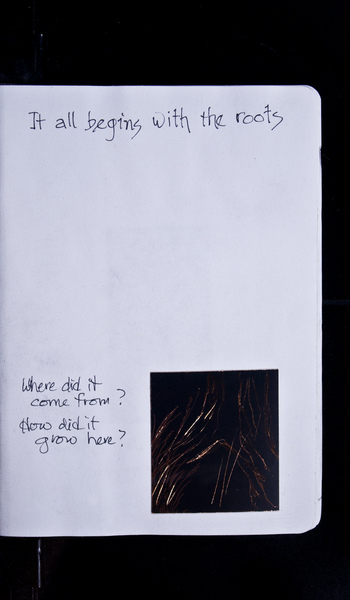 It all begins with the roots
Where did it
come from?
How did it
grow here?